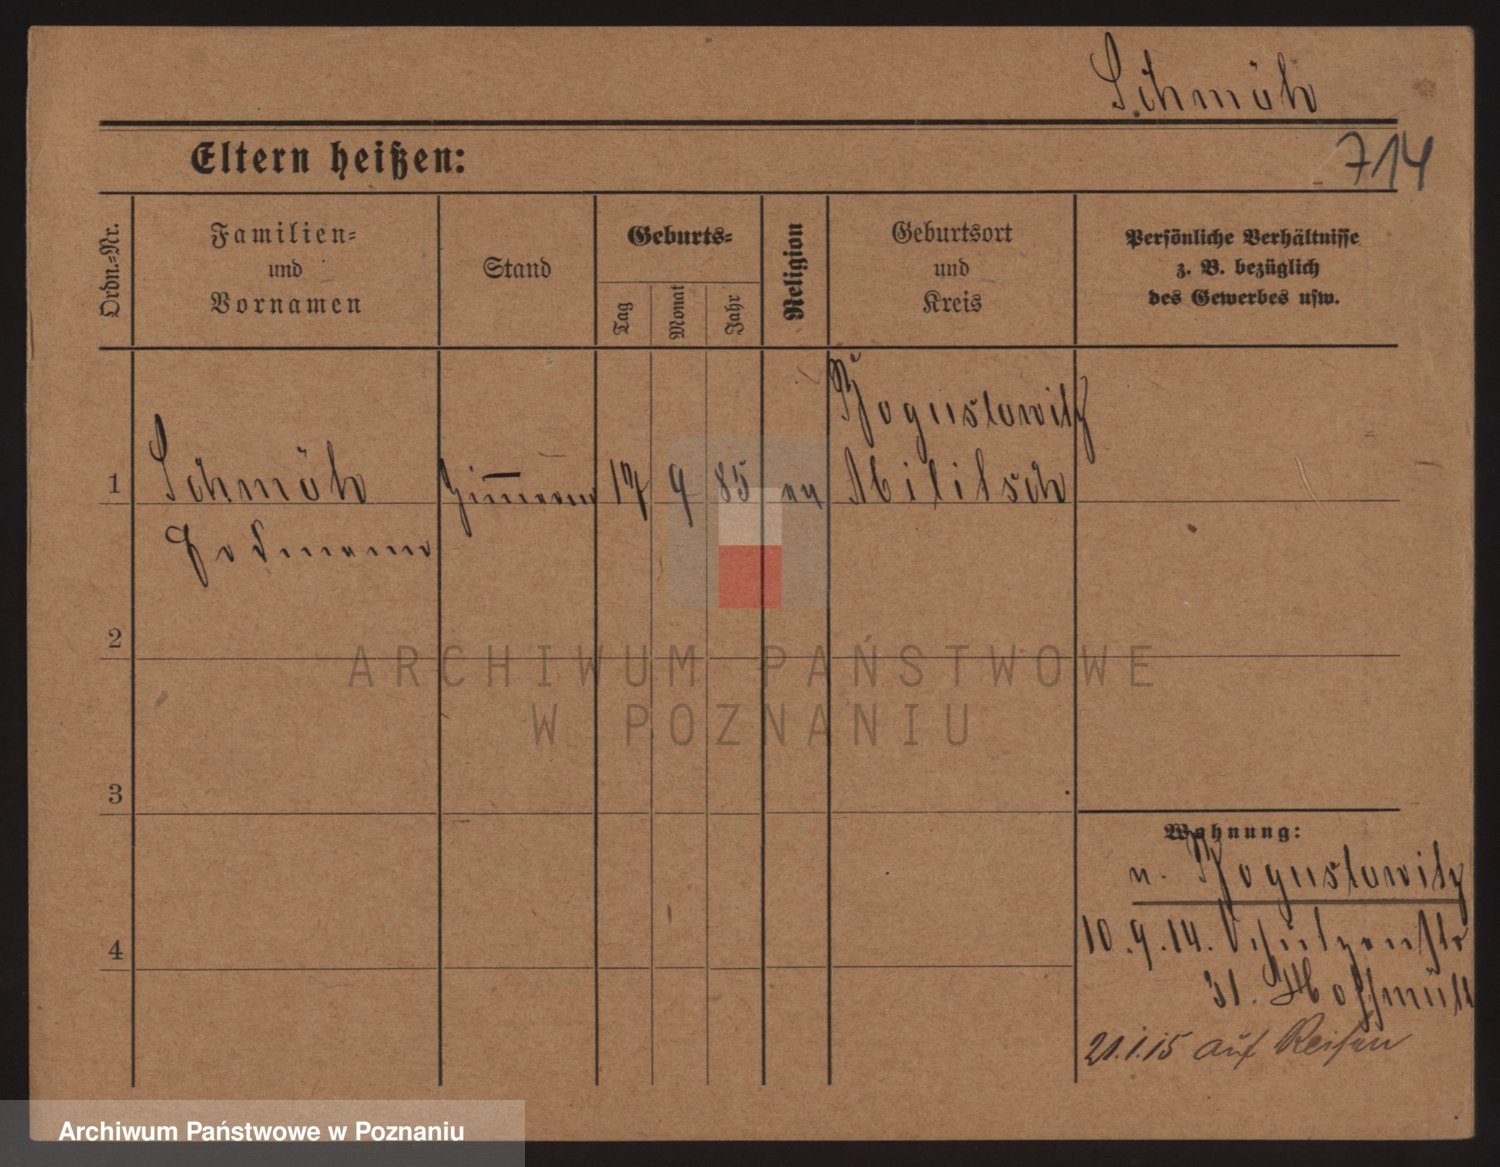 Schmöh
714
Eltern heißen:
Ordn.-Nr.
Familien-
und
Vornamen
Stand
Geburts-
Tag
Monat
Jahr
Religion
Geburtsort
und
Kreis
Persönliche Verhältnisse
z. B. bezüglich
des Gewerbes usw.
Boguslawitz
1
Schmöh
17
9
85
ev
Militsch
2
3
4
Wohnung:
n. Boguslawitz
10.9.14. Schützenstr
31.
21.1.15 auf Reisen
ARCHIWUM PAŃSTWOWE
W POZNANIU
Archiwum Państwowe w Poznaniu